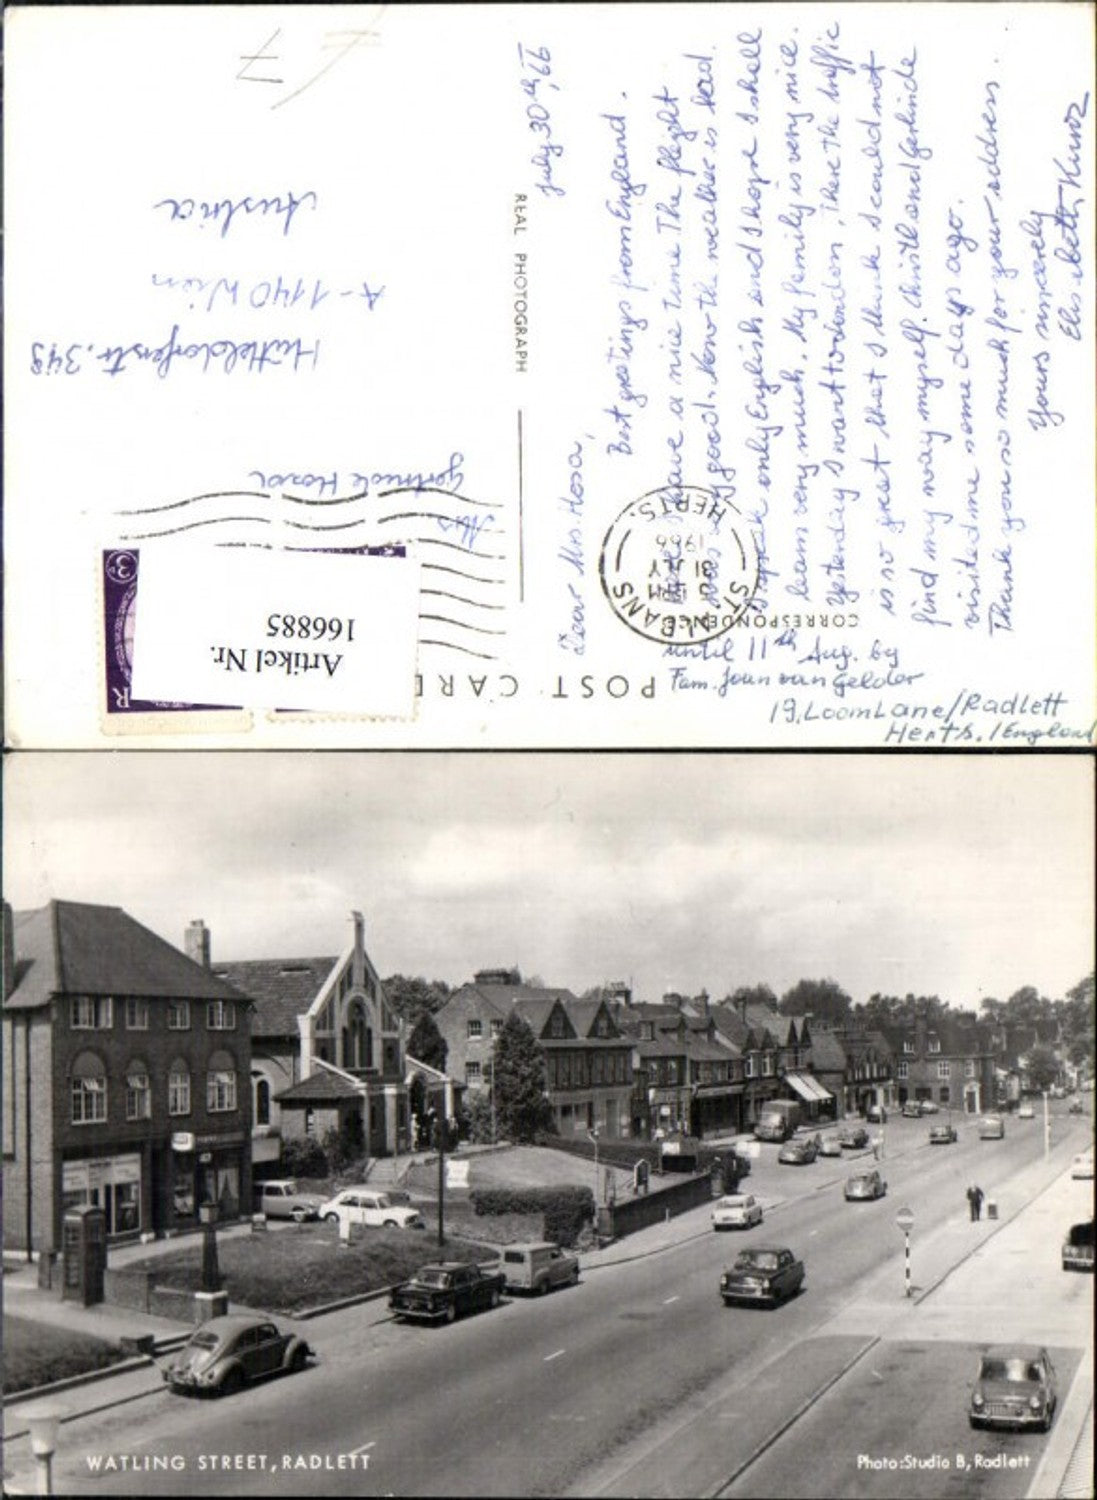 POST CARD
CORRESPONDENCE
REAL PHOTOGRAPH
July 30th, 66
Dear Mrs. Hosa,
Best greetings from England.
have a nice time. The flight
was good. Now the weather is bad.
I speak only English and I hope I shall
learn very much. My family is very nice.
Yesterday I was in London, there the traffic
is so great that I think I could not
find my way myself. Christl and Gerlinde
visited me some days ago.
Thank you so much for your address.
Yours sincerely
Elisabeth Kunz
until 11th Aug. by
Fam. Joan van Gelder
19, Loom Lane/Radlett
Herts. / England
ST. ALBANS
HERTS.
PM
31 JLY
1966
3D
R
Artikel Nr.
166885
Mrs
Gertrude Hosa
Hütteldorferstr. 349
A-1140 Wien
Austria
7
WATLING STREET, RADLETT
Photo: Studio B, Radlett